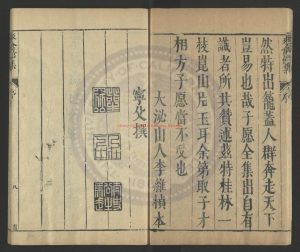 然特出籠蓋人群奔走天下
豈易也哉子愿全集出自有
識者所共贊述茲特桂林一
枝崑山片玉耳余第取子才
相方子愿當不受也
大泌山人李維楨本
寧父撰